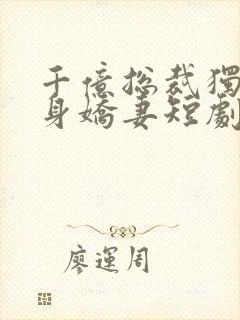 千億總裁獨
身嬌妻短劇
廖運周